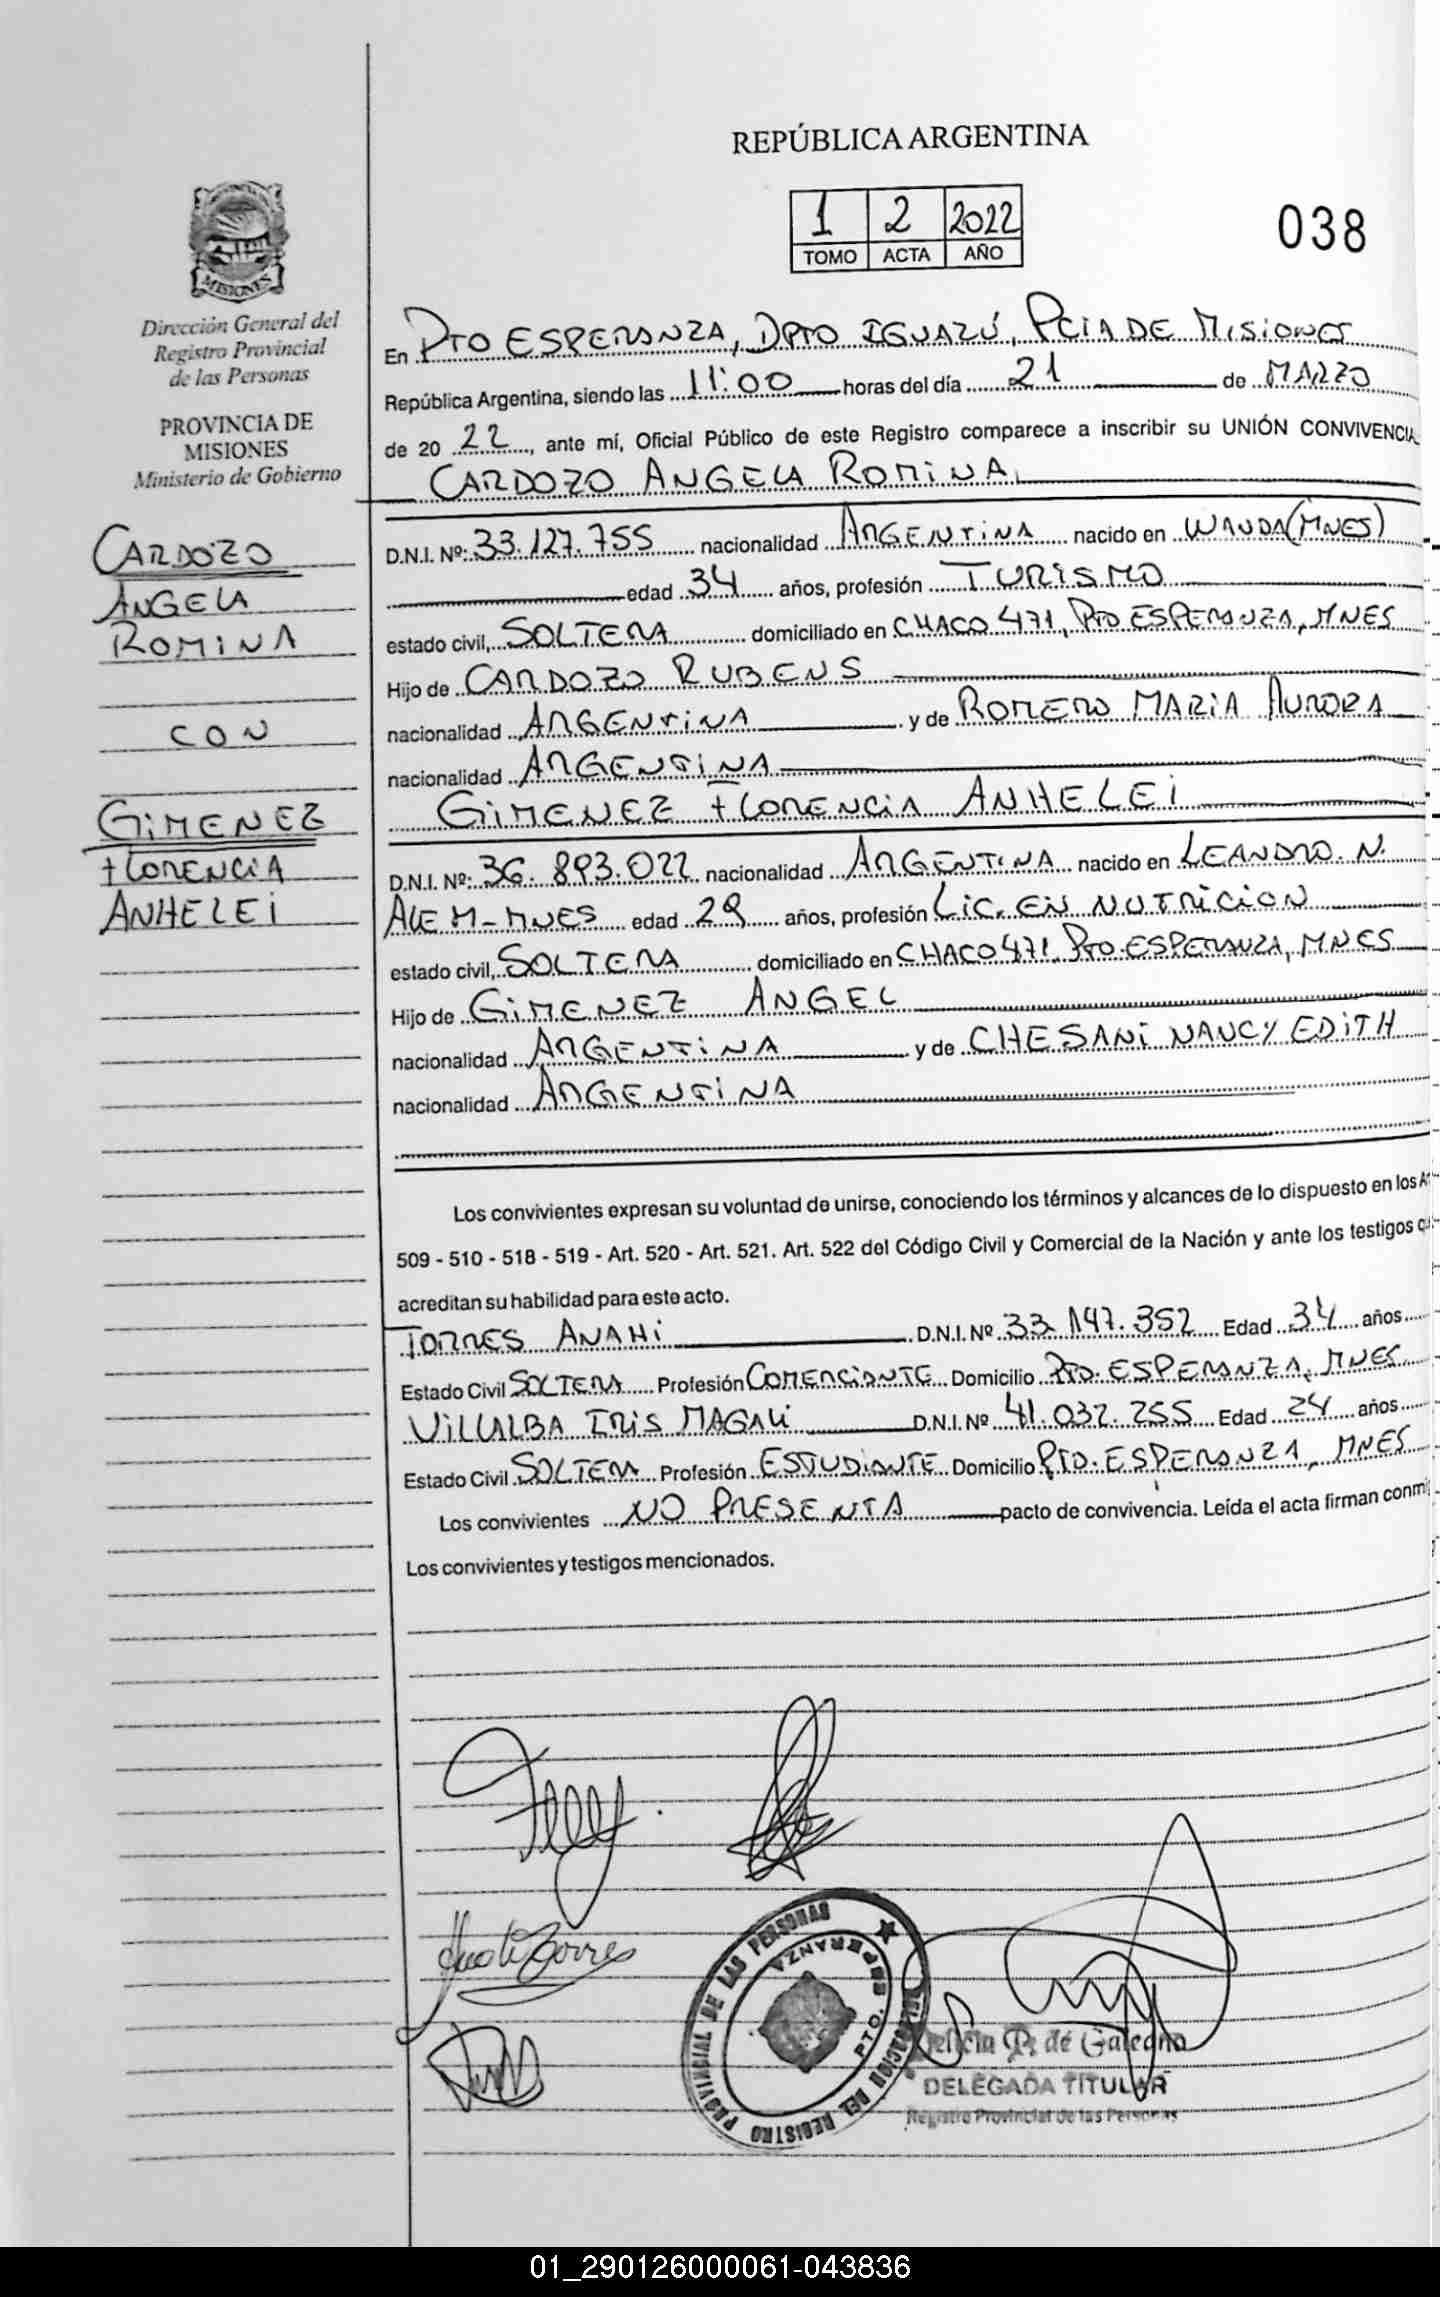 REPÚBLICA ARGENTINA
1 2 2022
TOMO ACTA AÑO
038
MISIONES
Dirección General del
Registro Provincial
de las Personas
PROVINCIA DE
MISIONES
Ministerio de Gobierno
CARDOZO
ANGELA
ROMINA
CON
GIMENEZ
FLORENCIA
ANHELEI
En PTO ESPERANZA, DPTO IGUAZÚ, PCIA DE MISIONES
República Argentina, siendo las 11:00 horas del día 21 de MARZO
de 20 22, ante mí, Oficial Público de este Registro comparece a inscribir su UNIÓN CONVIVENCIA
CARDOZO ANGELA ROMINA
D.N.I. Nº: 33.127.755 nacionalidad ARGENTINA nacido en WANDA (MNES)
edad 34 años, profesión TURISMO
estado civil, SOLTERA domiciliado en CHACO 471, PTO ESPERANZA, MNES
Hijo de CARDOZO RUBENS
nacionalidad ARGENTINA y de ROMERO MARIA AURORA
nacionalidad ARGENTINA
GIMENEZ FLORENCIA ANHELEI
D.N.I. Nº: 36.893.022 nacionalidad ARGENTINA nacido en LEANDRO. N.
ALEM-MNES edad 29 años, profesión LIC. EN NUTRICION
estado civil, SOLTERA domiciliado en CHACO 471, PTO. ESPERANZA, MNES
Hijo de GIMENEZ ANGEL
nacionalidad ARGENTINA y de CHESANI NANCY EDITH
nacionalidad ARGENTINA
Los convivientes expresan su voluntad de unirse, conociendo los términos y alcances de lo dispuesto en los A
509 - 510 - 518 - 519 - Art. 520 - Art. 521. Art. 522 del Código Civil y Comercial de la Nación y ante los testigos q
acreditan su habilidad para este acto.
TORRES ANAHI D.N.I. Nº 33.147.352 Edad 34 años
Estado Civil SOLTERA Profesión COMERCIANTE Domicilio PTO. ESPERANZA, MNES
VILLALBA IRIS MAGALI D.N.I. Nº 41.037.255 Edad 24 años
Estado Civil SOLTERA Profesión ESTUDIANTE Domicilio PTO. ESPERANZA, MNES
Los convivientes NO PRESENTA pacto de convivencia. Leída el acta firman conmi
Los convivientes y testigos mencionados.
DELEGACION DEL REGISTRO PROVINCIAL DE LAS PERSONAS
PTO. ESPERANZA
de Galeano
DELEGADA TITULAR
Registro Provincial de las Personas
01_290126000061-043836